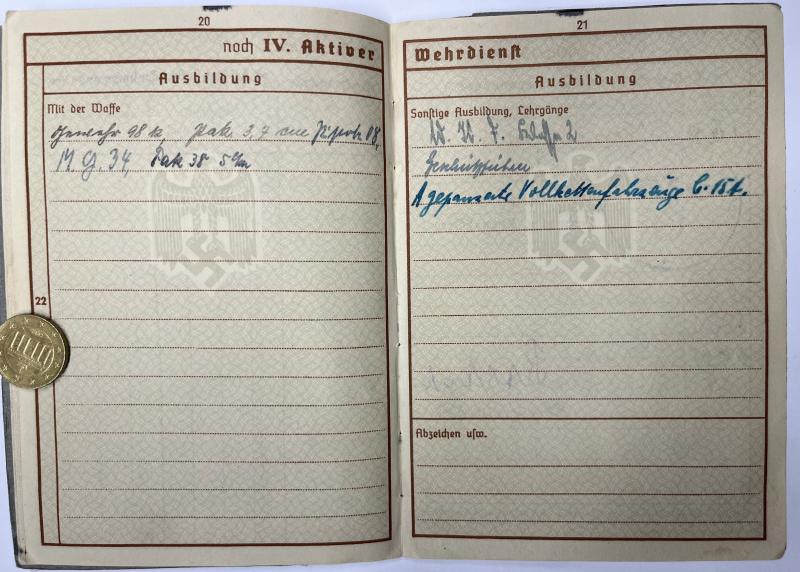 20
noch IV. Aktiver
Ausbildung
Mit der Waffe
Gewehr 98 k, Pak 3,7 cm Pistole 08,
M.G. 34, Pak 38 5 cm
22
21
Wehrdienst
Ausbildung
Sonstige Ausbildung, Lehrgänge
2
Geschützführer
gepanzerte Vollkettenfahrzeuge b. 15 t.
Abzeichen usw.